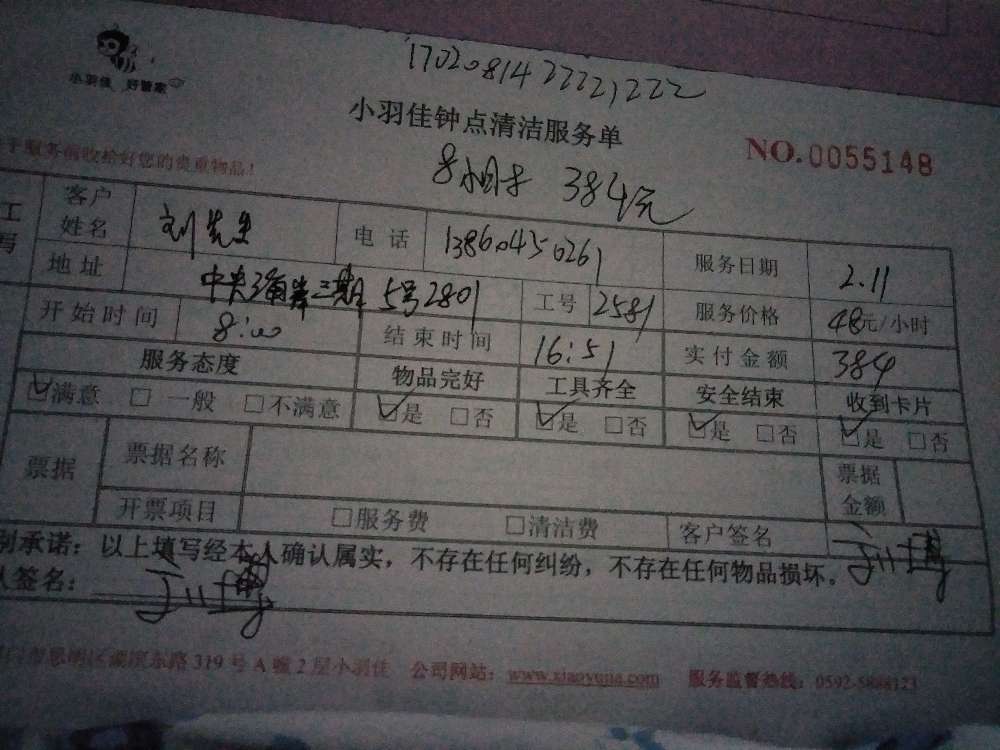 小羽佳 好管家
1702081422221222
小羽佳钟点清洁服务单
NO.0055148
于服务前收拾好您的贵重物品!
8小时 384元
工 写
客户姓名 刘先生 电话 13860450261 服务日期 2.11
地址 中央海岸三期5号2801 工号 2581 服务价格 48元/小时
开始时间 8:00 结束时间 16:51 实付金额 384
服务态度 物品完好 工具齐全 安全结束 收到卡片
☑满意 □一般 □不满意 ☑是 □否 ☑是 □否 ☑是 □否 ☑是 □否
票据 票据名称 票据金额
开票项目 □服务费 □清洁费 客户签名
别承诺:以上填写经本人确认属实,不存在任何纠纷,不存在任何物品损坏。
人签名:
门市思明区湖滨东路319号A幢2层小羽佳 公司网站:www.xiaoyujia.com 服务监督热线:0592-5888123